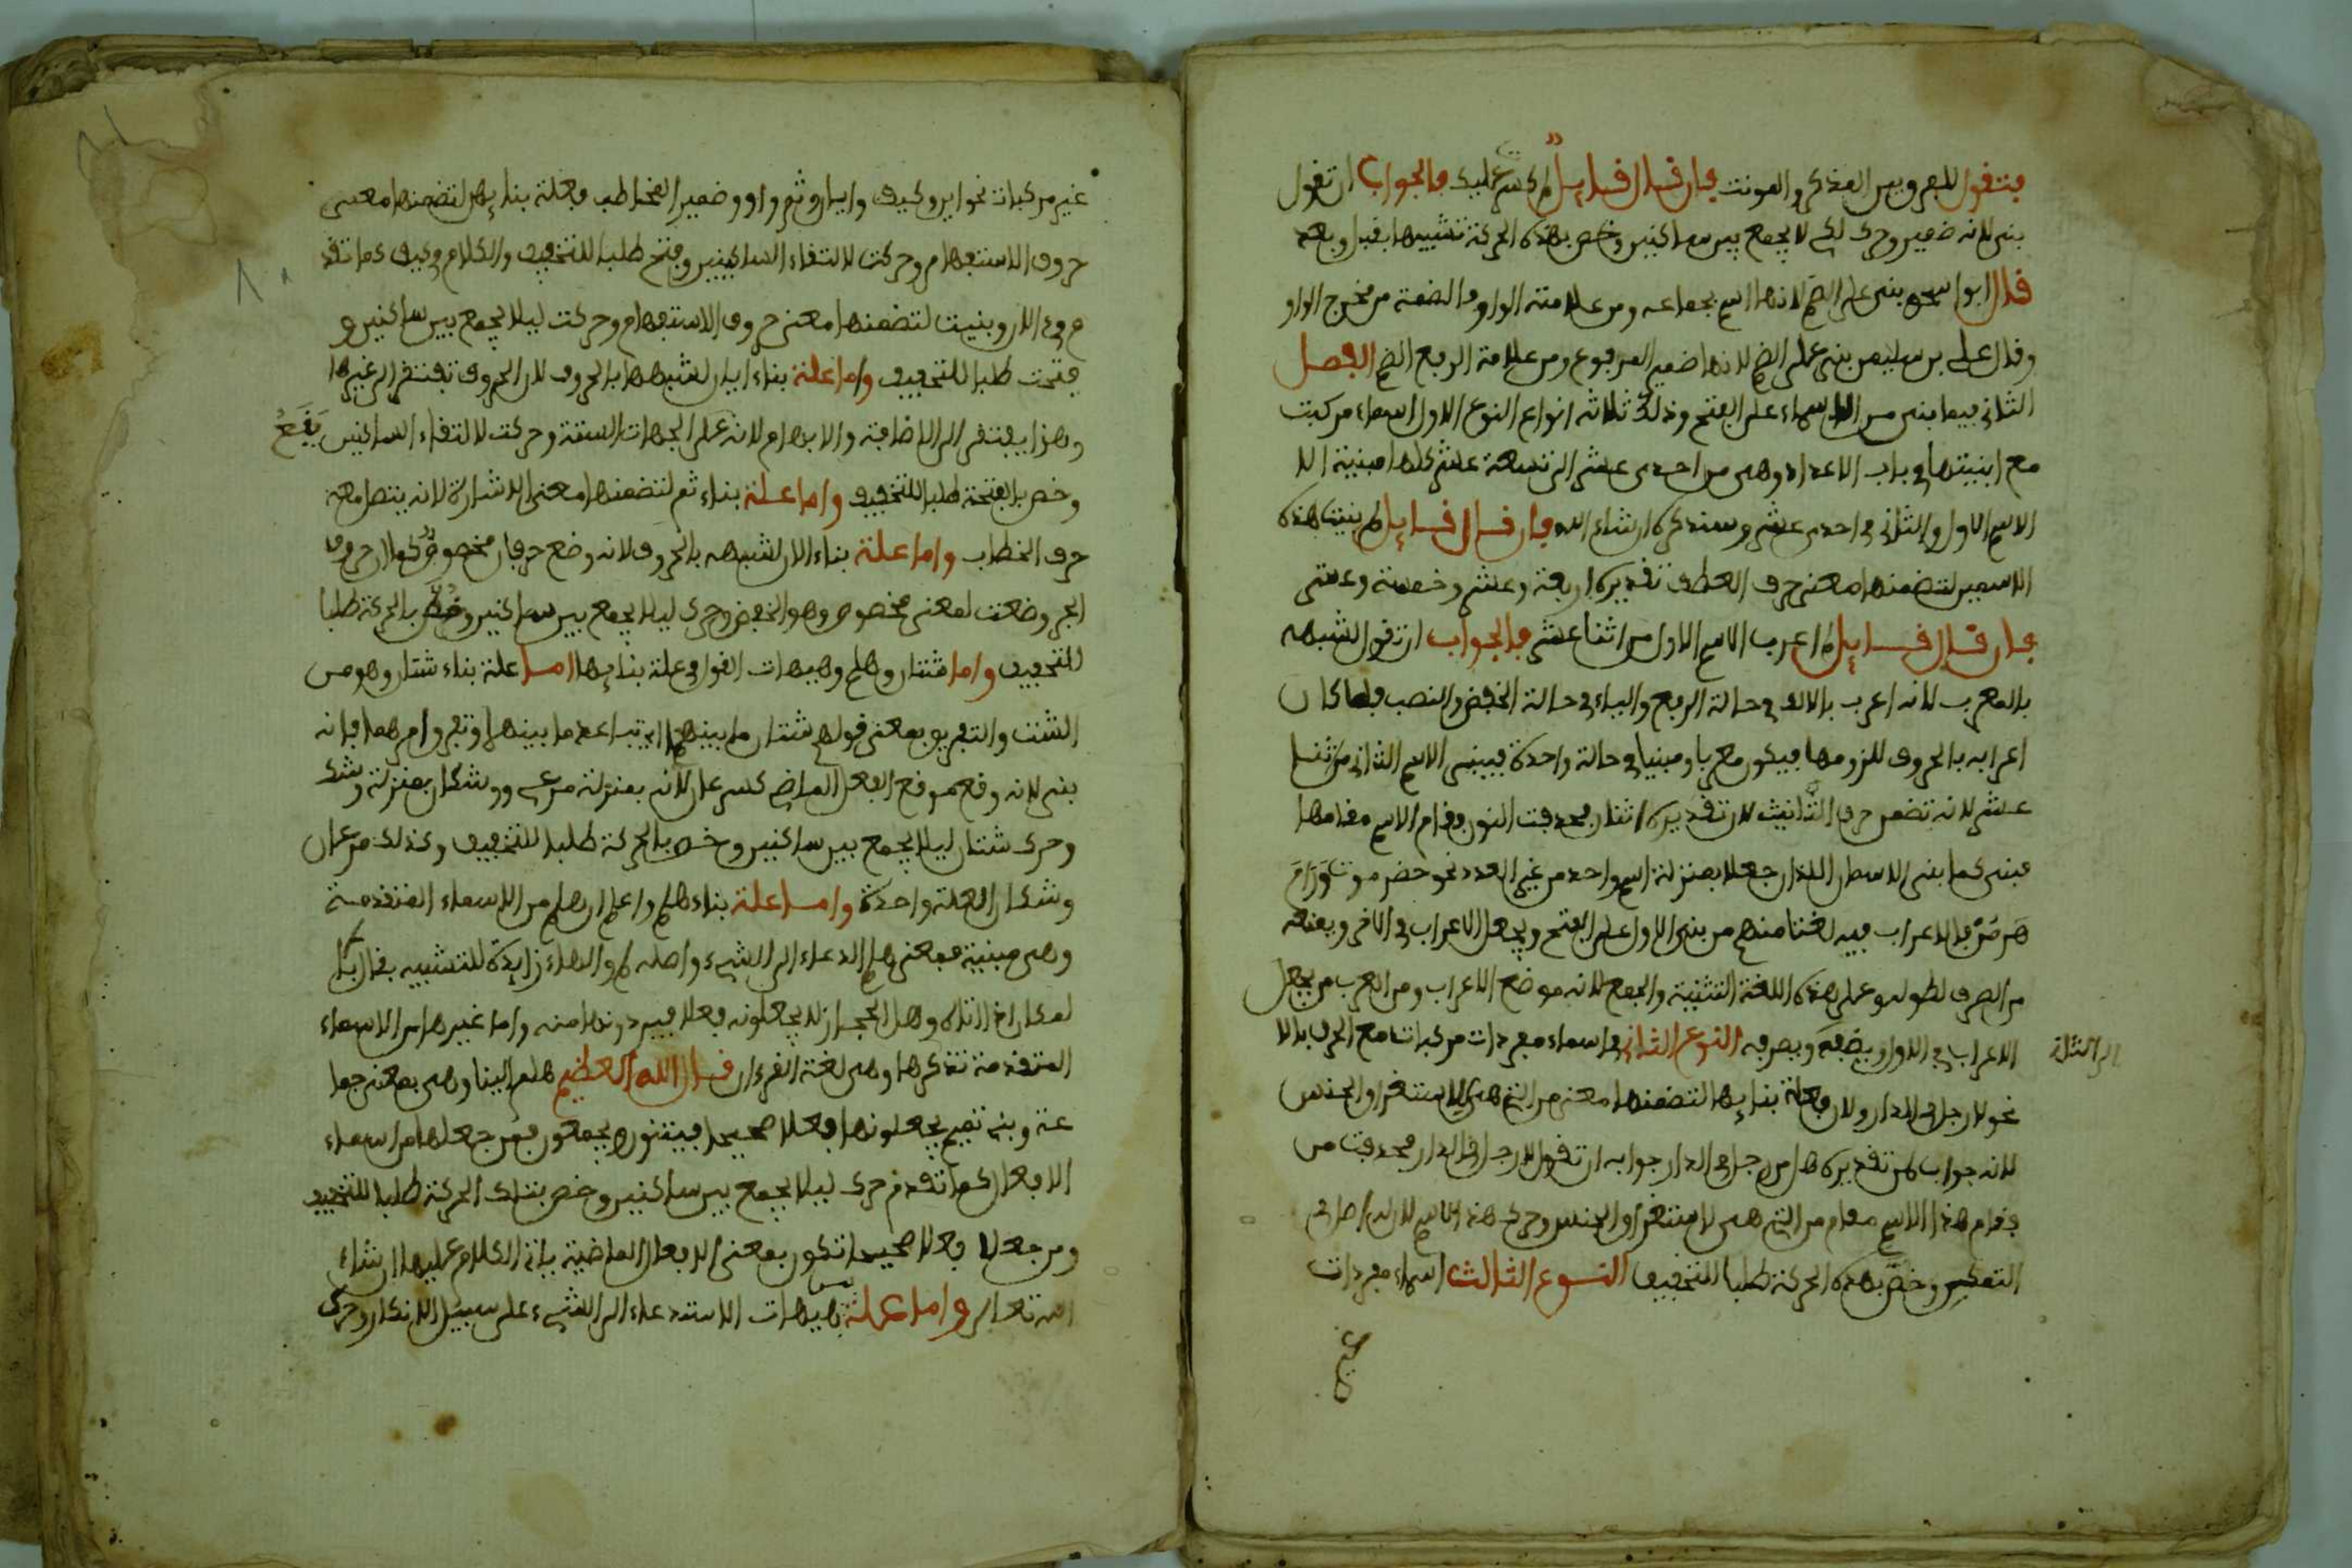 فتقول للفرق بين المذكر والمونث فإن قال قايل لم كسر عليك فالجواب ان تقول
بنى لانه ضمير وحرك لكي لا يجمع بين ساكنين وخص بهذه الحركة تشبيها بقبل وبعد
قال ابو اسحق بنى على الضم لانها اسم جماعه ومن علامته الواو والضمة من مخرج الواو
وقال على بن سليمن بنى على الضم لانها ضمير المرفوع ومن علامة الرفع الضم الفصل
الثاني فيما بنى من الاسماء على الفتح وذلك ثلاثه انواع النوع الاول اسماء مركبت
مع ابنيتها في باب الاعداد وهى من احدى عشر الى تسعة عشر كلها مبنية الا
الاسم الاول والثاني في احدى عشر وسنذكره ان شاء الله فان قال قايل لم بنيت هذه
الاسمين لتضمنها معنى حرف العطف تقديره اربعة وعشر وخمسة وعشر
فان قال قايل لم اعرب الاسم الاول من اثنا عشر فالجواب ان تقول الشبهه
بالمعرب لانه اعرب بالالف في حالة الرفع والياء في حالة الخفض والنصب فلما كان
اعرابه بالحروف للزومها فيكون معربا ومبنيا في حالة واحدة فيبنى الاسم الثاني من اثنا
عشر لانه تضمن حرف التانيث لان تقديره اثنان فحذفت النون وقام الاسم مقامها
فبنى كما بنى الاسمان اللذان جعلا بمنزلة اسم واحد من غير العدد نحو حضر موت ورام
هرمز فالاعراب فيه لغتا منهم من بنى الاول على الفتح ويجعل الاعراب في الاخر ويمنعه
من الصرف لطوله وعلى هذه اللغة التثنية والجمع لانه موضع الاعراب ومن العرب من يجعل
الاعراب في الاول ويضيفه ويصرفه النوع الثاني في اسماء مفردات مركبات مع الحرف بالا
الى الثلة
نحو لا رجل في الدار ولان فعلة بنايها لتضمنها معنى من التي هي للاستغراق الجنس
لانه جواب لمن تقديره هل من رجل في الدار جوابه ان تقول لا رجل في الدار فحذفت من
فقام هذا الاسم مقام من التي هي لاستغراق الجنس وحرك هذا الاسم لان له اصل في
التمكين وخص بهذه الحركة طلبا للتخفيف النوع الثالث اسماء مفردات
غير
غير مركبات نحو اين وكيف وايان وثم واو وضمير المخاطب فعلة بنا اين لتضمنها معنى
حروف الاستفهام وحركت لالتقاء الساكنين وفتح طلبا للتخفيف والكلام في كيف كما تقد
م في الان وبنيت لتضمنها معنى حروف الاستفهام وحركت ليلا يجمع بين ساكنين و
فتحت طلبا للتخفيف واما علة بناء ايان لشبهها بالحروف لان الحروف تفتقر الى غيرها
وهذا يفتقر الى الاضافة والابهام لانه على الجهات الستة وحركت لالتقاء الساكنين يقع
وخص بالفتحة طلبا للتخفيف واما علة بناء ثم لتضمنها معنى الاشارة لانه يتصل معه
حرف الخطاب واما علة بناء الان لشبهه بالحروف لانه وضع حرفان مخصوص كما ان حروف
الجر وضعت لمعنى مخصوص وهو الخفض وحرك ليلا يجمع بين ساكنين وخص بالحركة طلبا
للتخفيف واما شتان وهلم وهيهات القول في علة بنايها اما علة بناء شتان وهو من
الشتت والتفريق بمعنى قولهم شتان ما بينهما اي تباعد ما بينهما وتفرق امرهما فانه
بنى لانه وقع موقع الفعل الماضي كسرعان لانه بمنزلة سرعى ووشكان بمنزلة وشك
وحرك شتان ليلا يجمع بين ساكنين وخص بالحركة طلبا للتخفيف وكذلك سرعان
وشكان العلة واحدة واما علة بناء هلم واعلم ان هلم من الاسماء المتقدمة
وهى مبنية فمعنى هلم الدعاء الى الشيء واصله لم والهاء زايدة للتنبيه يقال يا
المتقدمة تذكرها وهى لغة القرءان قال الله العظيم هلم الينا وهى بمعنى جما
عة وبني تميم يجعلونها فعلا صحيحا فيثنون ويجمعون فمن جعلها من اسماء
الافعال كما تقدم حرك ليلا يجمع بين ساكنين وخص بتلك الحركة طلبا للتخفيف
ومن جعلها فعلا صحيحا تكون بمعنى الافعال الماضية ياتي الكلام عليها ان شاء
الله تعالى واما علة هيهات الاستدعاء الى الشيء على سبيل الانكار وحرك